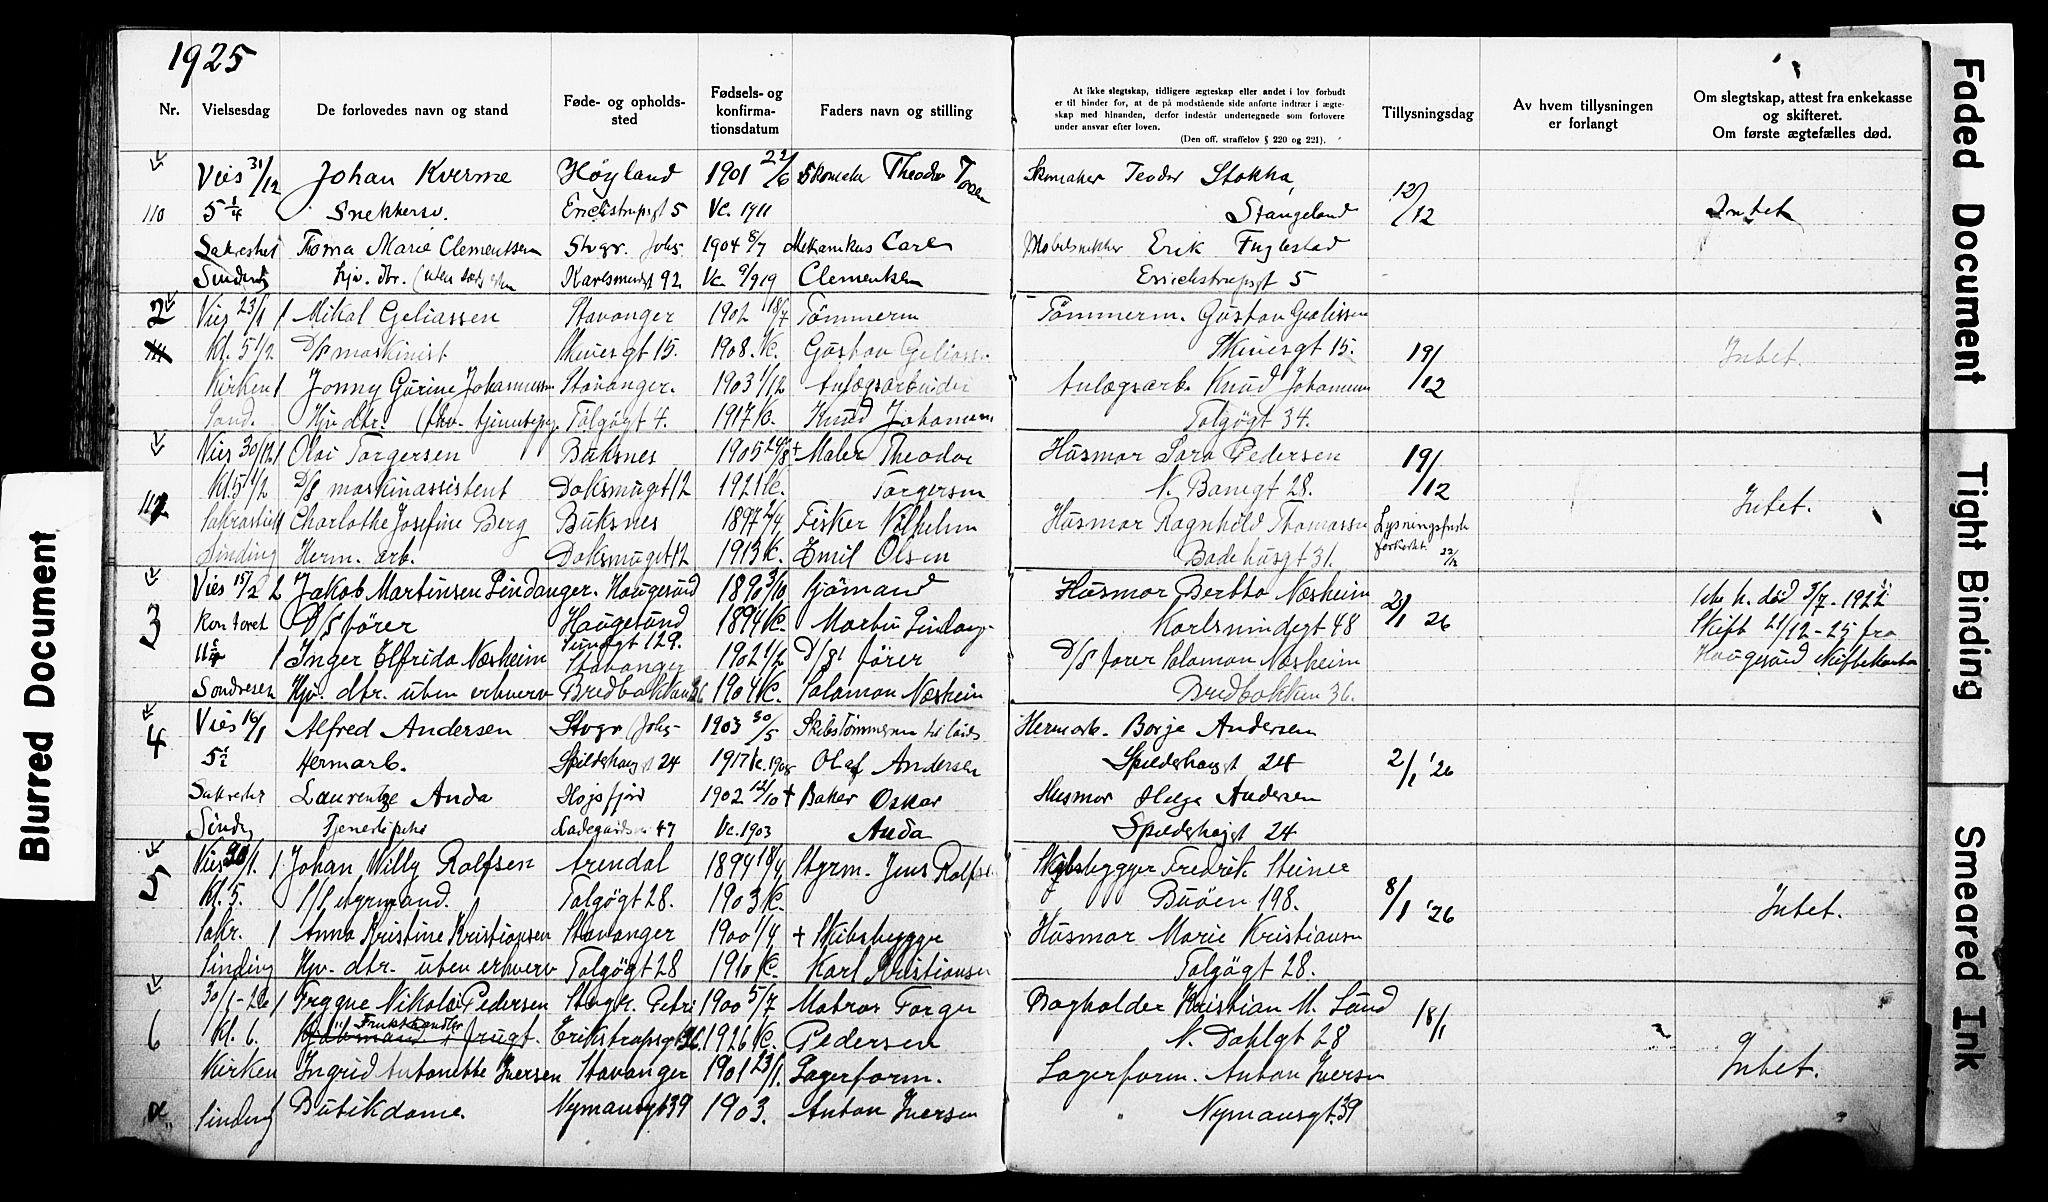 1925
Nr. Vielsesdag De forlovedes navn og stand Føde- og opholds-sted Fødsels- og konfirma-tionsdatum Faders navn og stilling
At ikke slegtskap, tidligere ægteskap eller andet i lov forbudt
er til hinder for, at de på modstående side anførte indtrær i ægte-
skap med hinanden, derfor indestår undertegnede som forlovere
under ansvar efter loven.
(Den off. straffelov § 220 og 221).
Tillysningsdag
Av hvem tillysningen
er forlangt
Om slegtskap, attest fra enkekasse
og skifteret.
Om første ægtefælles død.
Vies 31/12 Johan Kverme Høyland 1901 22/6 Skomaker Theodor Skomaker Teodor Stokka, 12/12
110 5 1/4 Snekkersv. Erichstrupsgt 5 Vc. 1911 Stangeland Intet
Sakrestiet Thoma Marie Clementsen Stvgr. Johs 1904 8/7 Mekanikus Carl Møbelsnekker Erik Fuglestad
Sinding hjv. dtr. Karlsmindegt 92 Vc. 9/919 Clementsen Erichstrupsgt 5
2 Vies 23/1 1 Mikal Geliassen Stavanger 1902 18/7 Tømmerm Tømmerm. Gustav Geliassen
111 Kl. 5 1/2 D/S maskinist Skuesgt 15. 1908. K. Gustav Geliassen Skuesgt 15. 19/12 Intet.
Kirken 1 Jonny Gurine Johannessen Stavanger. 1903 1/12 Anlægsarbeider Anlægsarb. Knud Johannessen
Hjv. dtr. Tolgøgt 4. 1917 K. Knud Johannessen Tolgøgt 34.
Vies 30/12 1 Olai Torgersen Buksnes 1905 24/8 + Maler Theodor Husmor Sara Pedersen 19/12
Kl. 5 1/2 D/S maskinassistent Doksmuget 12 1921 K. Torgersen N. Banegt 28.
112 Sakrastiet Charlothe Josefine Berg Buksnes 1897 Fisker Vilhelm Husmor Ragnhild Thomassen Lysningsfrist Intet.
Sinding Herm. arb. Doksmuget 12 1913 K. Emil Olsen Badehusgt 31. forkortet 22/12
Vies 15/2 2 Jakob Martinsen Lindanger. Haugesund 1890 3/10 Sjømand Husmor Bertha Næsheim 2/1 26 1ste h. død 3/7-1922
3 Kontoret D/S fører Haugesund 1894 K. Martin Karlsmindegt 48 Skift 21/12-25 fra
1 Inger Elfrida Næsheim Stavanger 1902 1/2 D/S fører D/S fører Salamon Næsheim Haugesund Skiftekontor
Sondresen Hjv. dtr. uten erhverv Bredbakken 36 1904 K. Salamon Næsheim Bredbakken 36.
4 Vies 16/1 Alfred Andersen Stvgr Johs 1903 30/5 Skibstømmerm Hermarb. Borje Andersen
Hermarb. Spilderhaugt 24 1917 Olaf Andersen Spilderhaugt 24 2/1 '26
Sakrestiet Laurentze Anda Høgsfjord 1902 12/10 + Baker Oskar Husmor Helga Andersen
Sinding Tjenestepike Ladegaardsv 47 Vc. 1903 Anda Spilderhaugt 24
5 Vies 30/1. 1 Johan Willy Rolfsen Arendal 1894 18/4 Styrm. Jens Rolfsen Skibsbygger Fredrik Steinee
Kl. 5. S/S styrmand. Tolgøgt 28. 1903 K. Buöen 198. 8/1 '26 Intet.
Sakr. 1 Anna Kristine Kristiansen Stavanger 1900 1/4 + Skibsbygge Husmor Marie Kristiansen
Sinding Hjv. dtr. uten erhverv Tolgøgt 28 1916 K. Karl Kristiansen Tolgøgt 28.
30/1-26 1 Trygve Nikolai Pedersen Stvgr. Petri 1900 5/7 Matros Torger Bogholder Kristian M. Lund 18/1
6 Kl. 6. Frukthandler Erikstrupsgt 36. 1926 K. Pedersen N. Dahlgt 28 Intet.
Kirken Ingrid Antonette Iversen Stavanger 1901 23/1. Lagerform. Lagerform. Anton Iversen
Sinding Butikdame. Nymansgt 39 1903. Anton Iversen Nymansgt. 39
Blurred Document
Faded Document
Tight Binding
Smeared Ink